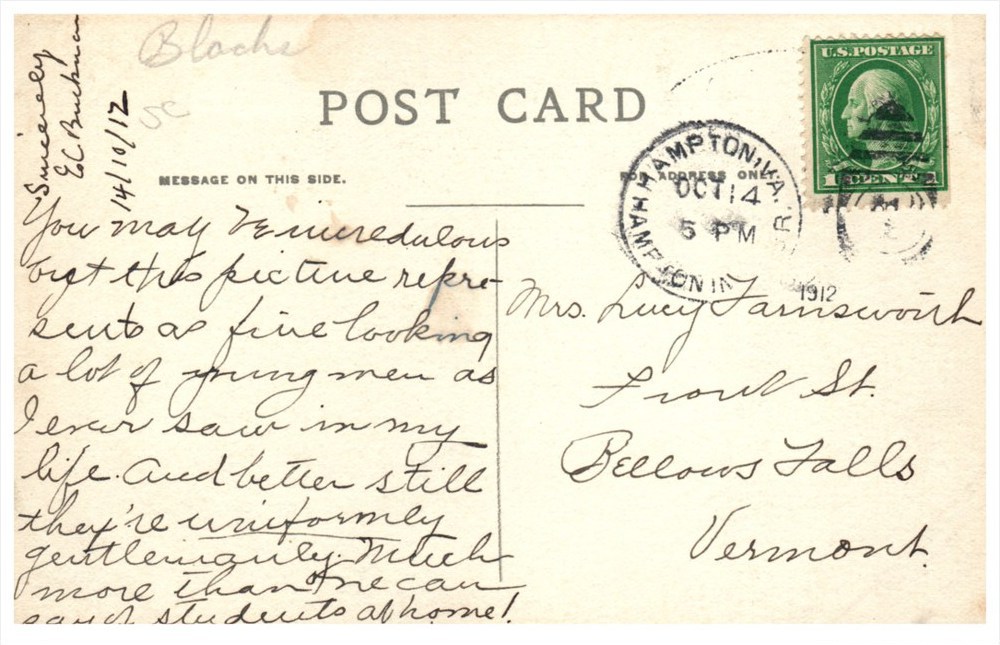 Blacks
5c
POST CARD
MESSAGE ON THIS SIDE.
FOR ADDRESS ONLY
U.S. POSTAGE
1 CENT 1
HAMPTON, VA.
OCT 14
5 PM
1912
HAMPTON IN
R.
You may be incredulous
but this picture repre-
sents as fine looking
a lot of young men as
I ever saw in my
life. And better still
they're uniformly
gentlemanly. Much
more than one can
say of students at home!
Sincerely
E.C. Buckman
14/10/12
Mrs. Lucy Farnsworth
Front St.
Bellows Falls
Vermont.